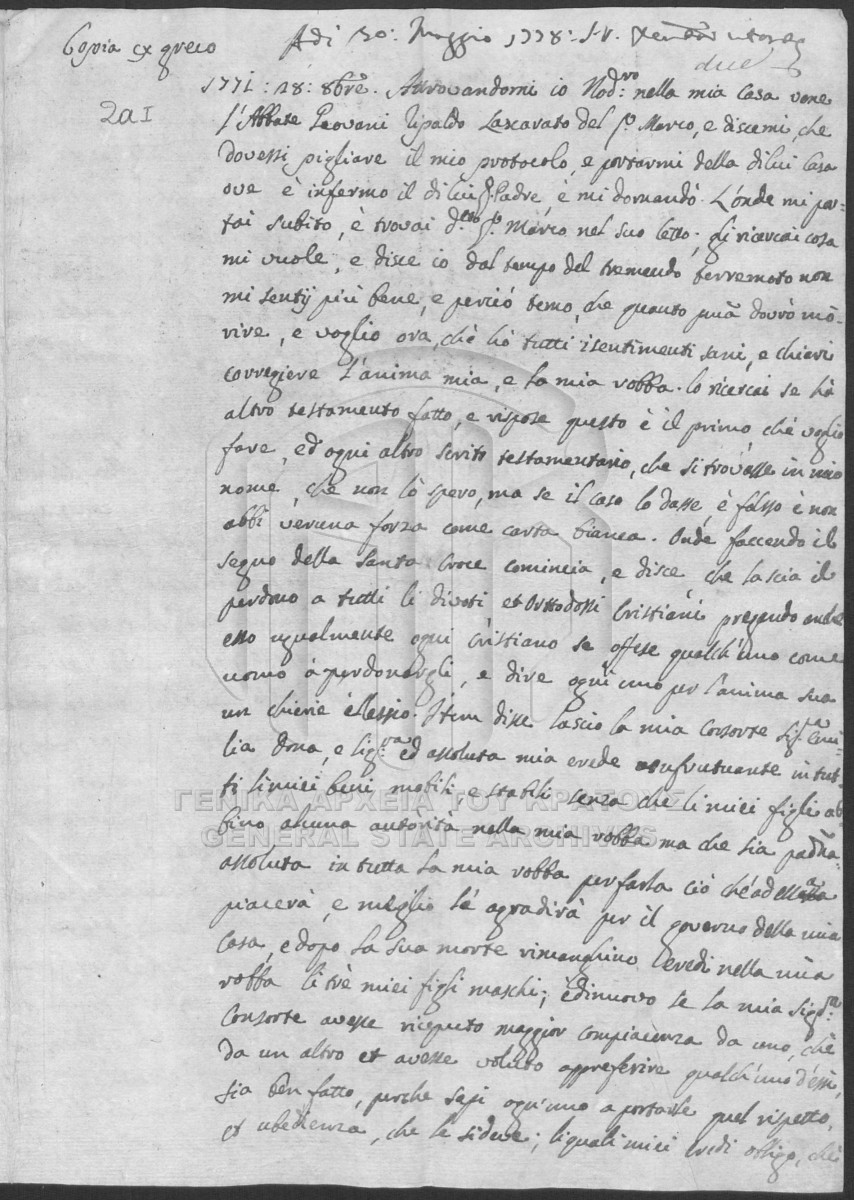 Copia ex greco
Adi 30: Maggio 1778: S.V.
due
2a I
1771: 18: 8bre. Attrovandomi io Nod:ro nella mia Casa vene
l'Abbate Giovani Lascarato del Marco, e discemi, che
dovessi pigliare il mio protocolo, e portarmi della dilui Casa
ove è infermo il dilui Padre, è mi domandò. L'onde mi por=
tai subito, è trovai d:to Marco nel suo letto; gli ricercai cosa
mi vuole, e disce io dal tempo del tremendo terremoto non
mi sentij più bene, e perciò temo, che quanto p̃ma dovrò mo=
rire, e voglio ora, chè hò tutti i sentimenti sani, e chiari
corregiere l'anima mia, e la mia robba. Lo ricercai se hà
altro testamento fatto, e rispose questo è il primo, chè voglio
fare, ed ogni altro scrito testamentario, che si trovasse in mio
nome, che non lò spero, ma se il caso lo dasse, è falso è non
abbi veruna forza come carta bianca. Onde faccendo il
segno della Santa Croce comincia, e disce che lascia il
perdono a tutti li divoti et Orttodossi Cristiani pregando anche
esso ugualmente ogni Cristiano se offese qualch'uno come
uomo à perdonargli, e dire ogni uno per l'anima sua
un chierie èlessio. Item disse lascio la mia consorte Sig:ra
lia dona, e sig:ra ed assoluta mia erede usufrutuante in tut=
ti li miei beni mobili e stabili senza che li miei figli ab=
bino alcuna autòrità nella mia robba ma che sia padña
assoluta in tutta la mia robba per farla ciò ché ad essa
piacerà, e meglio lé agradirà per il governo della mia
Casa, e dopo la sua morte rimanghino eredi nella mia
robba li trè miei figli maschi; èdinuovo se la mia Sig:ra
Consorte avesse riceputo maggior compiacenza da uno, chè
da un altro et avesse voluto appreferire qualch'uno d'essi,
sia ben fatto, perche sapi ogn'uno a portarle quel rispetto,
et ubedienza, che le sideve; li quali miei eredi obligo, chè
ΓΕΝΙΚΑ ΑΡΧΕΙΑ ΤΟΥ ΚΡΑΤΟΥΣ
GENERAL STATE ARCHIVES